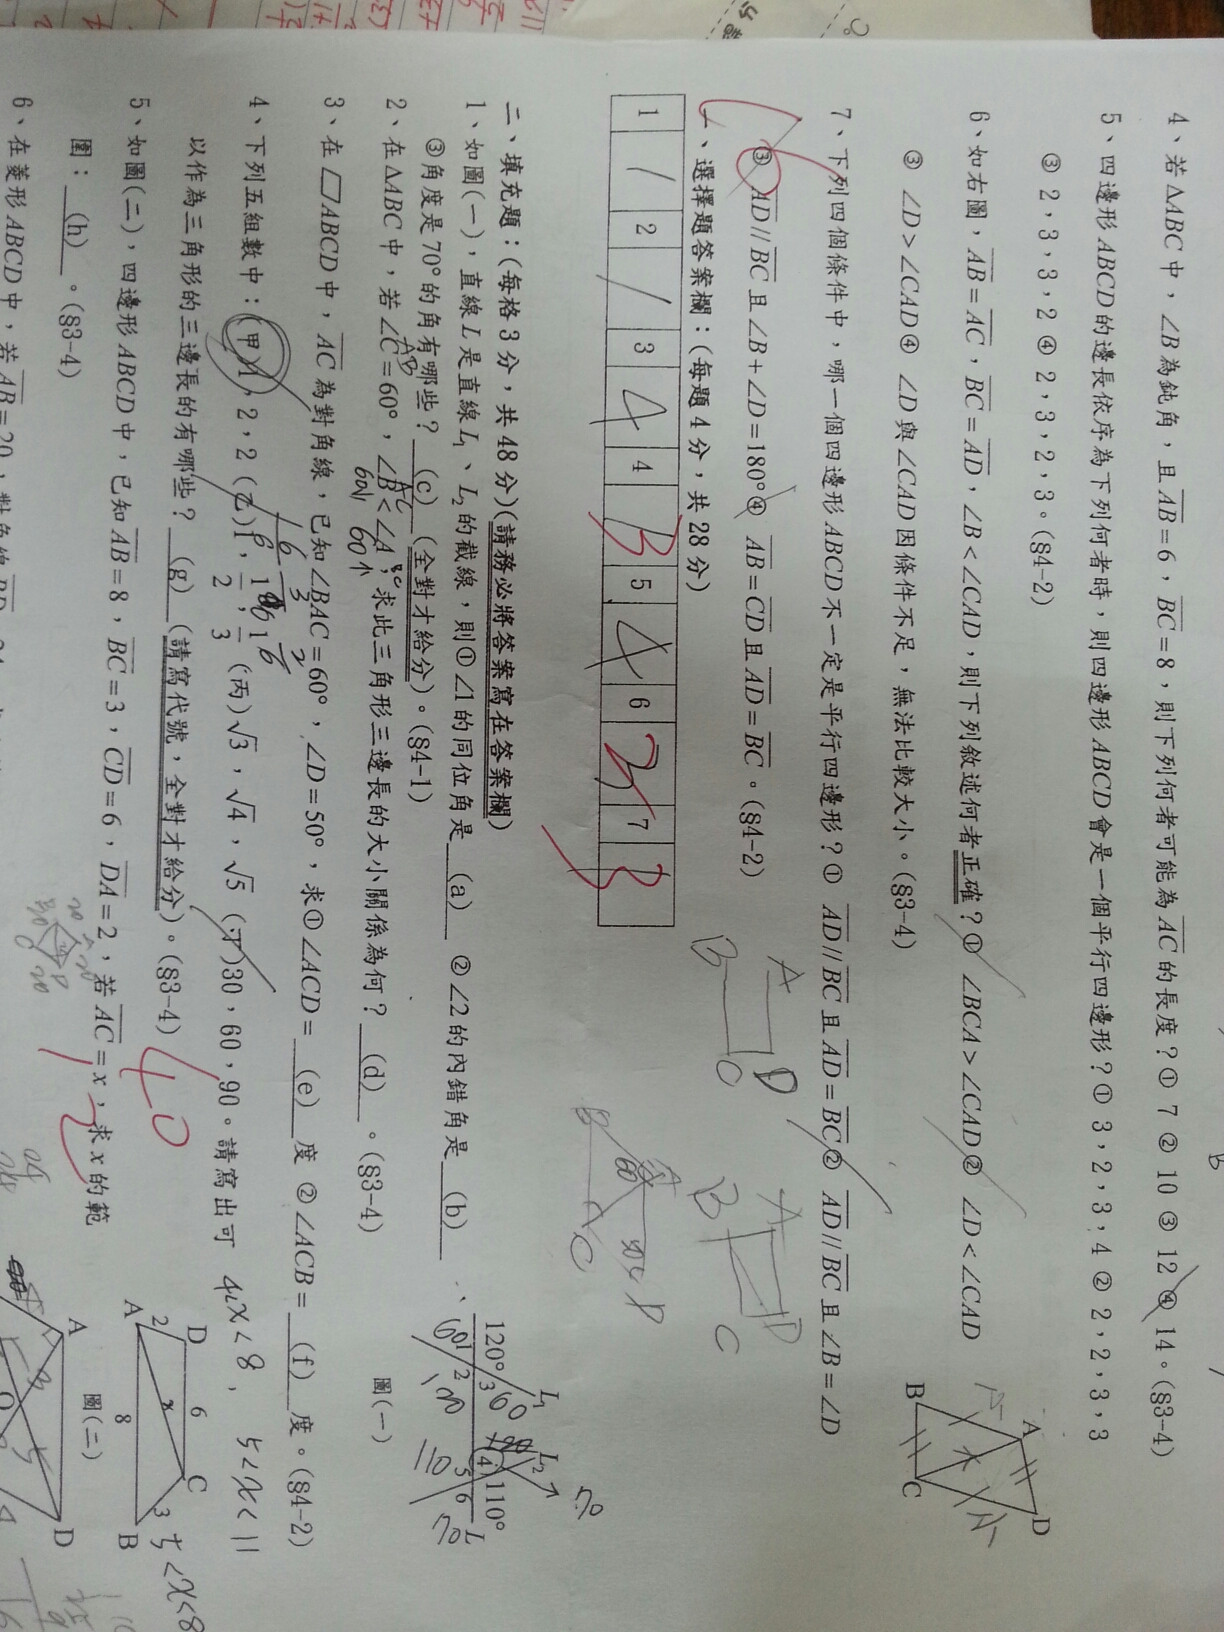 4、若ΔABC中，∠B為鈍角，且AB=6，BC=8，則下列何者可能為AC的長度？① 7 ② 10 ③ 12 ④ 14。(83-4)
5、四邊形ABCD的邊長依序為下列何者時，則四邊形ABCD會是一個平行四邊形？① 3，2，3，4 ② 2，2，3，3
③ 2，3，3，2 ④ 2，3，2，3。(84-2)
6、如右圖，AB=AC，BC=AD，∠B<∠CAD，則下列敘述何者正確？① ∠BCA>∠CAD ② ∠D<∠CAD
③ ∠D>∠CAD ④ ∠D與∠CAD因條件不足，無法比較大小。(83-4)
A
B
C
D
7、下列四個條件中，哪一個四邊形ABCD不一定是平行四邊形？① AD//BC且AD=BC ② AD//BC且∠B=∠D
③ AD//BC且∠B+∠D=180° ④ AB=CD且AD=BC。(84-2)
A D
B C
A D
B C
一、選擇題答案欄：(每題4分，共28分)
1 2 3 4 4 B 5 4 6 7 B
二、填充題：(每格3分，共48分)(請務必將答案寫在答案欄)
1、如圖(一)，直線L是直線L₁、L₂的截線，則①∠1的同位角是 (a) ②∠2的內錯角是 (b) 、
③角度是70°的角有哪些？ (c) (全對才給分)。(84-1)
120° 1 2 3 60 L₁ L₂ 4 5 6 110° L 70
110 70
圖(一)
2、在ΔABC中，若∠C=60°，∠B<∠A，求此三角形三邊長的大小關係為何？ (d) 。(83-4)
AB AC BC
3、在▱ABCD中，AC為對角線，已知∠BAC=60°，∠D=50°，求①∠ACD= (e) 度 ②∠ACB= (f) 度。(84-2)
4、下列五組數中：(甲)1，2，2 (乙)1，1/2，1/3 (丙)√3，√4，√5 (丁)30，60，90。請寫出可
以作為三角形的三邊長的有哪些？ (g) (請寫代號，全對才給分)。(83-4)
40
4<x<8，5<x<11
5<x<8
5、如圖(二)，四邊形ABCD中，已知AB=8，BC=3，CD=6，DA=2，若AC=x，求x的範
圍： (h) 。(83-4)
A 2 D 6 C 3 B 8 x
圖(二)
6、在菱形ABCD中，若AB=20，對角線
A D